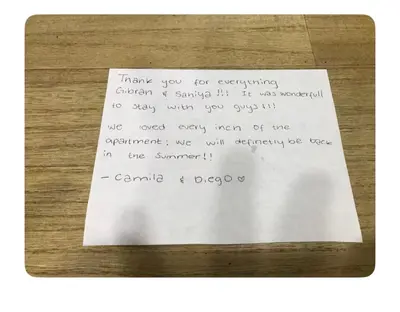 Thank you for everything
Gibran & Saniya!!! It was wonderfull
to stay with you guys!!!
we loved every inch of the
apartment; we will definetly be back
in the summer!!
- Camila & Diego